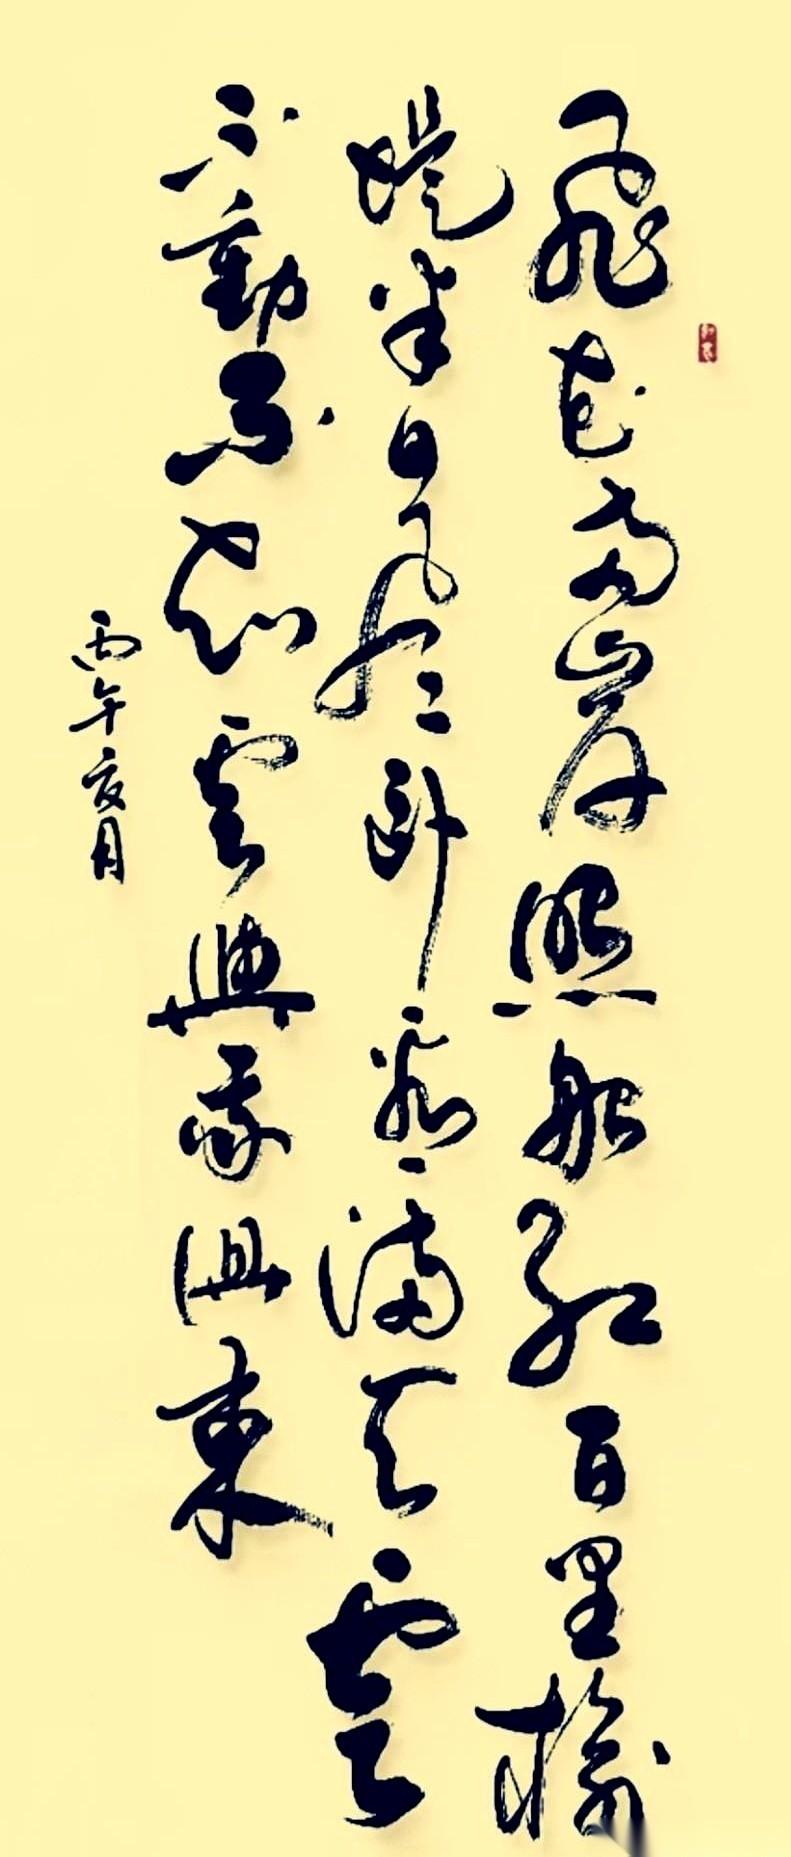 飛花兩岸照船紅百里榆
堤半日風卧看滿天雲
不動不知雲與我俱東
丙午夏月